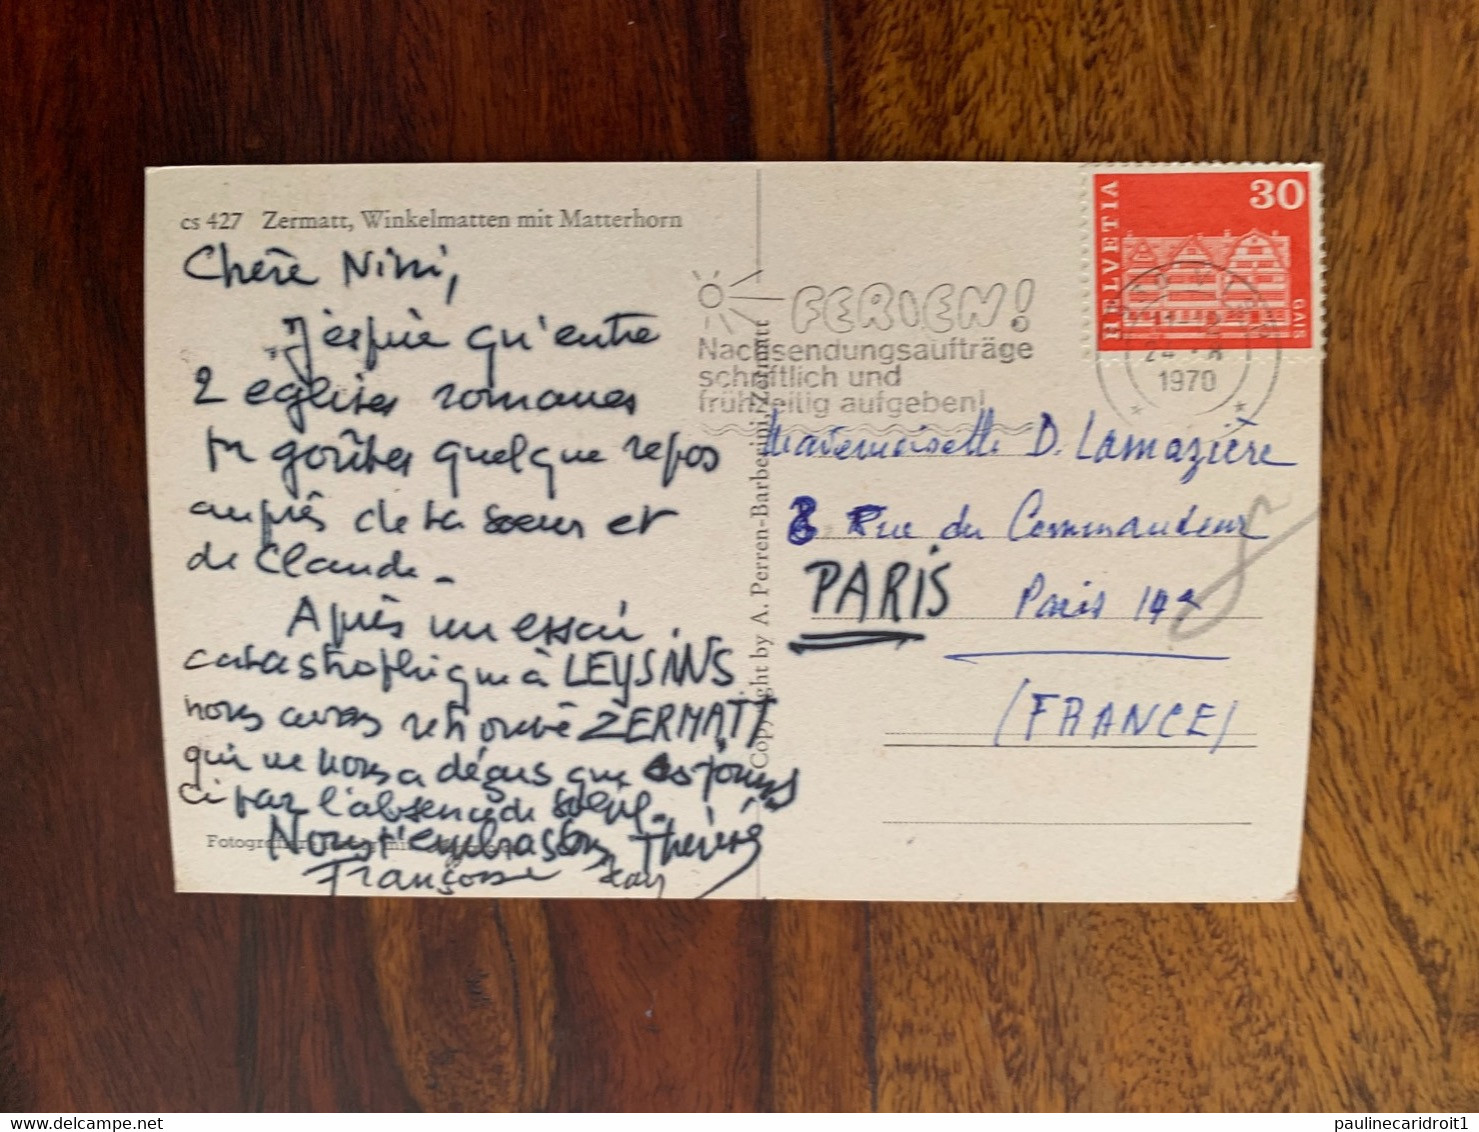 cs 427 Zermatt, Winkelmatten mit Matterhorn
Chère Nini,
J'espère qu'entre
2 églises romanes
tu goûtes quelque repos
auprès de ta soeur et
de Claude.
Après un essai
catastrophique à LEYSINS
nous avons retrouvé ZERMATT
qui ne nous a déçus que ces jours
ci par l'absence de soleil.
Nous t'embrassons, Thérèse
Françoise
Fotogr
Copyright by A. Perren-Barberini, Zermatt
FERIEN!
Nachsendungsaufträge
schriftlich und
frühzeitig aufgeben!
HELVETIA
30
GAIS
24
1970
Mademoiselle D. Lamazière
8 Rue du Commandeur
PARIS
Paris 14e
(FRANCE)
paulinecaridroit1